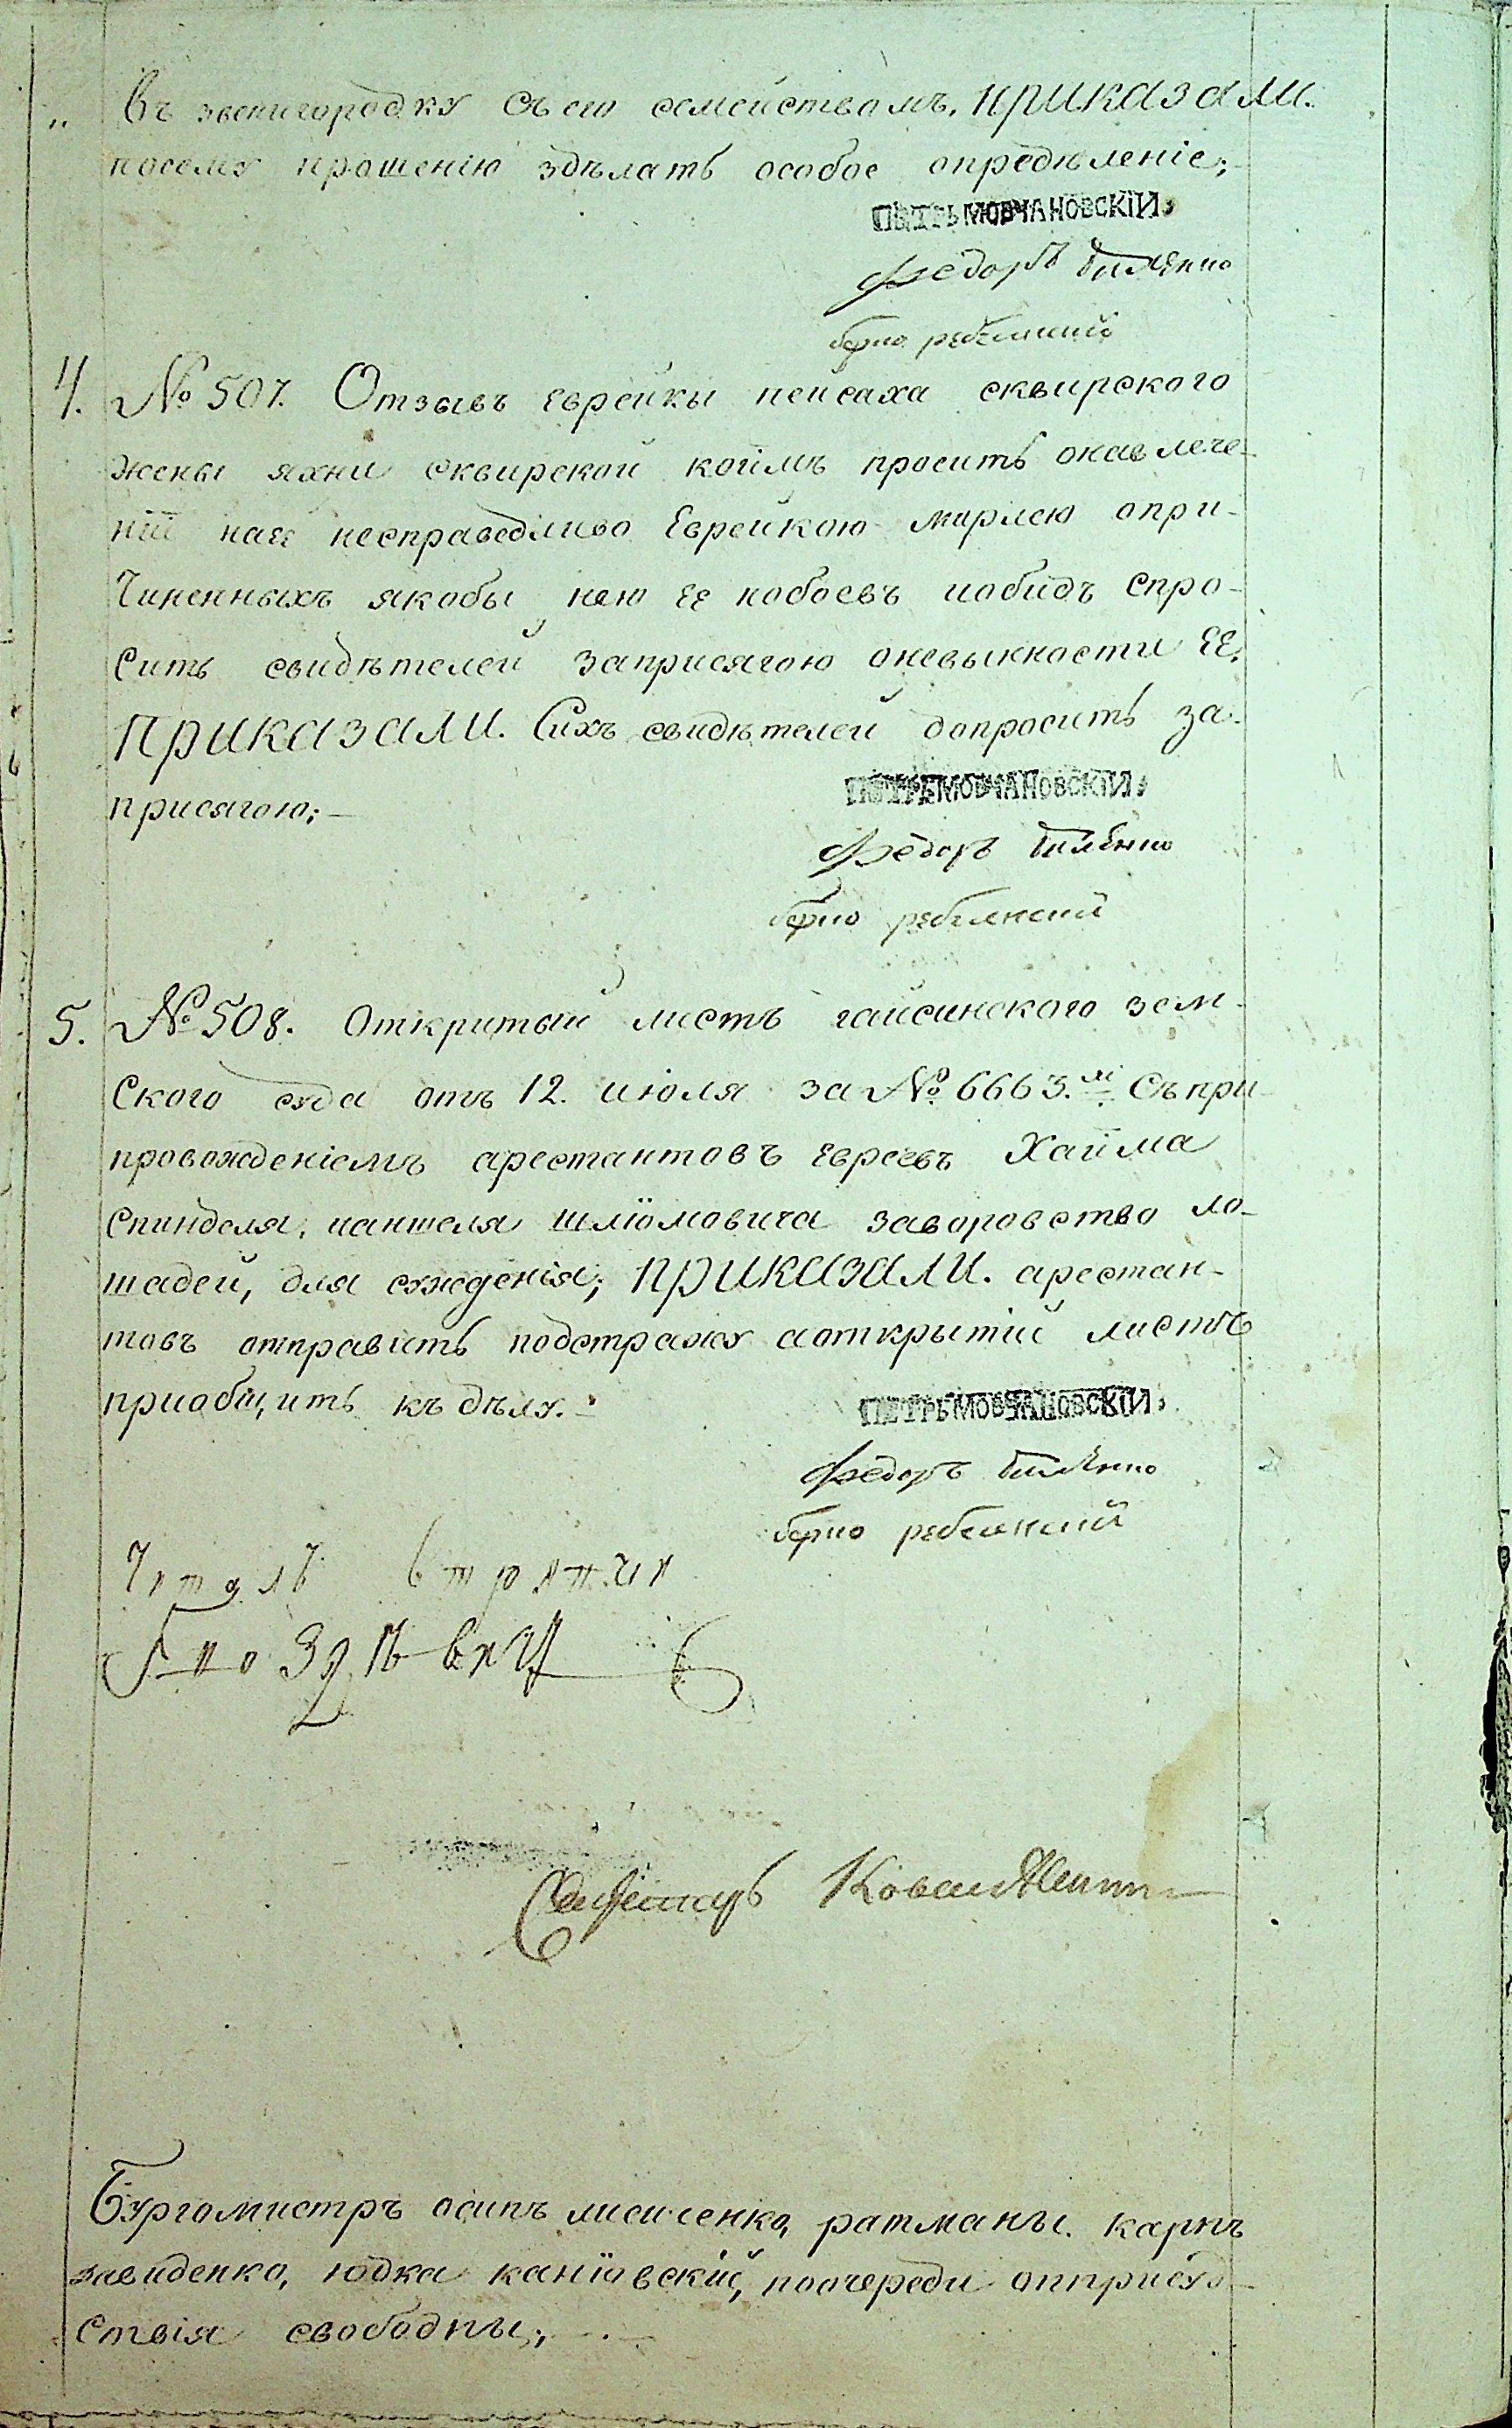 въ звенигородку съ его семействомъ. приказали.
посему прошенію здѣлать особое опредѣленіе;
ПЕТРЬ МОВЧАНОВСКІЙ
Федоръ
Берко
4. № 507. Отзывъ Еврейки пейсаха сквирского
жены яхни сквирской коимъ просить оклевече-
ніи наее несправедливо Еврейкою мирлею опри-
чиненныхъ якобы нею ее побоевъ иобидъ спро-
сить свидѣтелей заприсягою оневынности ее,
приказали. Сихъ свидѣтелей допросить за-
присягою;
ПЕТРЬ МОВЧАНОВСКІЙ
Федоръ
Берко
5. № 508. Откритый листъ гайсинского зем-
ского суда отъ 12. июля за № 6663.мъ Съ при-
провожденіемъ арестантовъ евреевъ Хаима
Спинделя, ианшеля шлюмовича заворовство ло-
шадей, для сужденія; приказали. арестан-
товъ отправить подстражу аоткрытій листъ
приобщить къ дѣлу.
ПЕТРЬ МОВЧАНОВСКІЙ
Федоръ
Берко
Читалъ
Секретарь
Бургомистръ осипъ лисиченко, ратманы. карпъ
давиденко, юдка каніовскій, поочереди отприсуд-
ствія свободны;